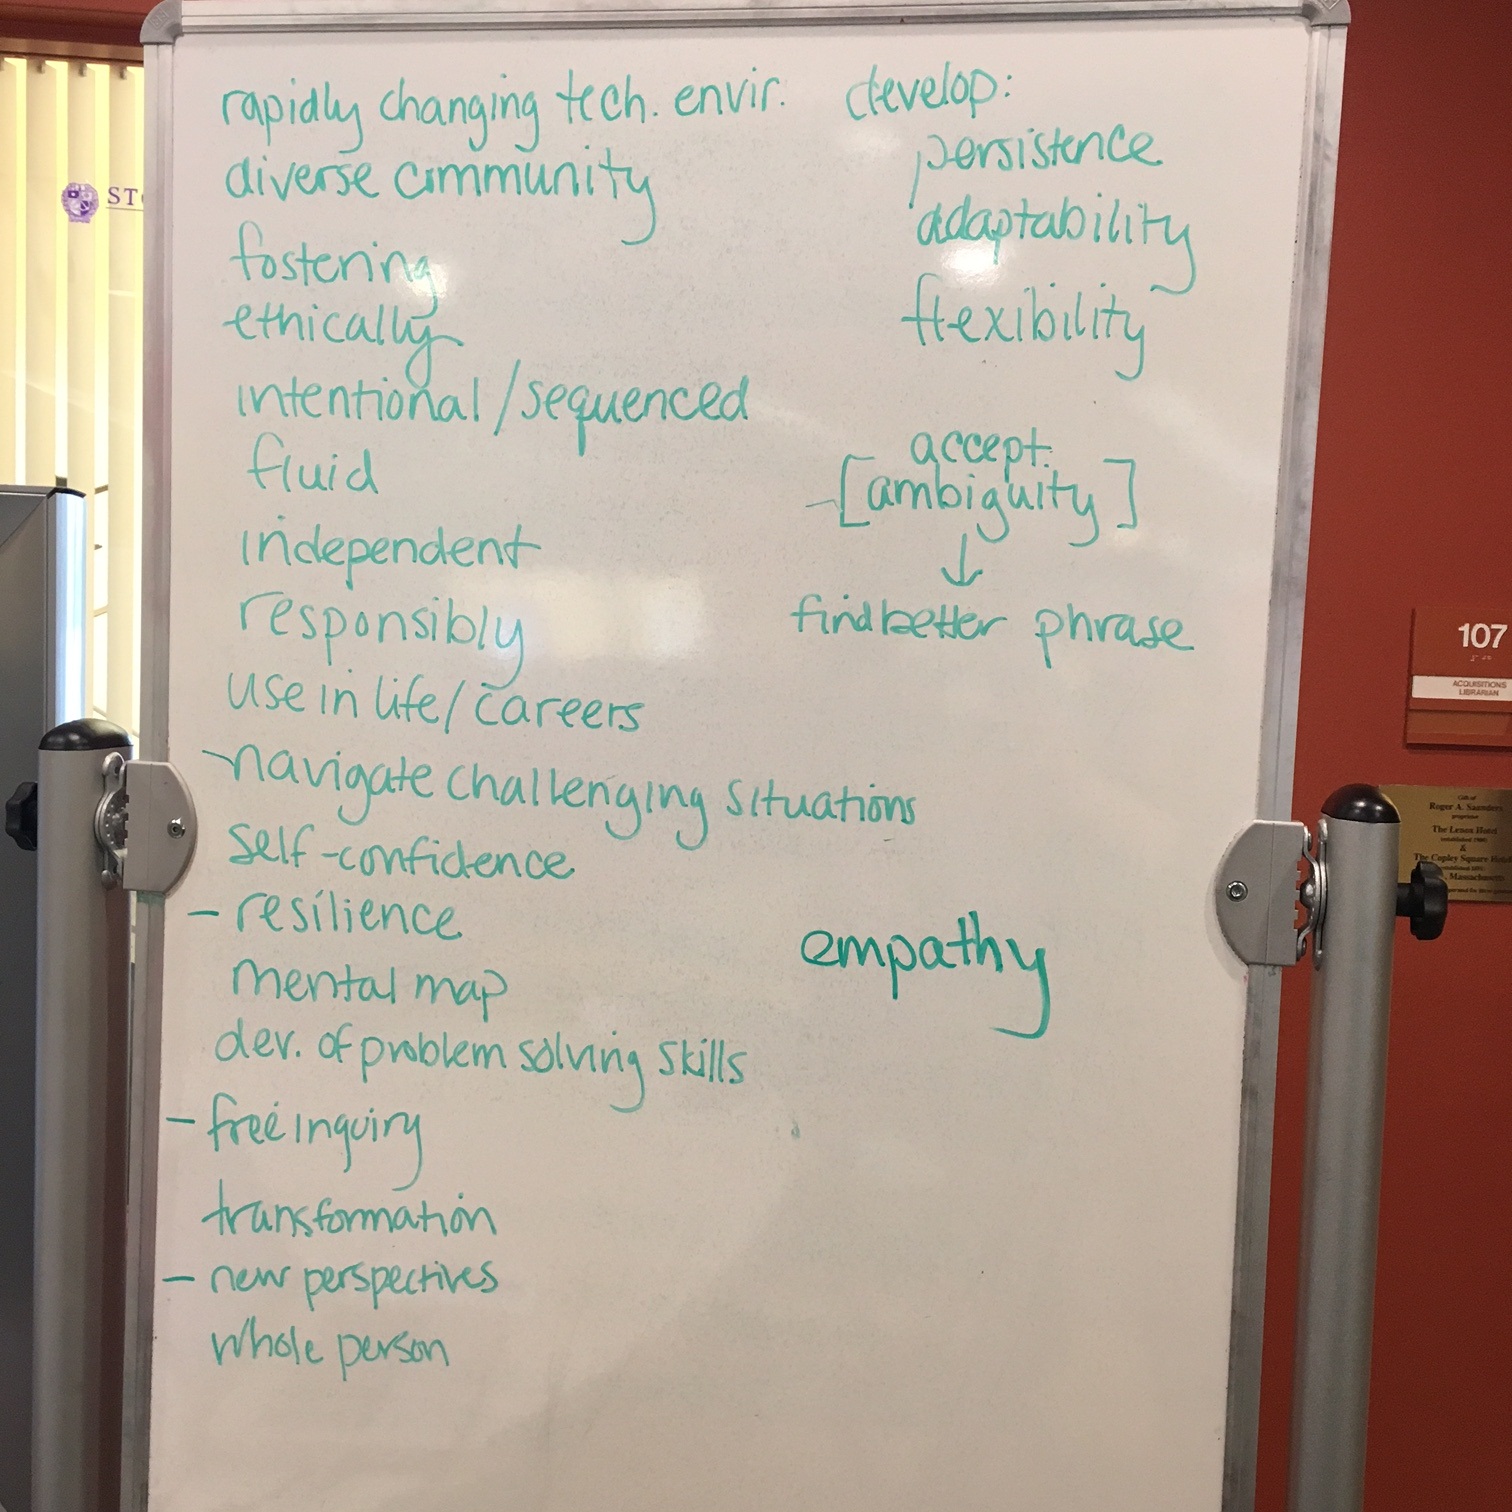 rapidly changing tech. envir.
diverse community
fostering
ethically
intentional / sequenced
fluid
independent
responsibly
use in life / careers
- navigate challenging situations
self-confidence
- resilience
mental map
dev. of problem solving skills
- free inquiry
transformation
- new perspectives
whole person
develop:
persistence
adaptability
flexibility
accept.
- [ambiguity]
↓
find better phrase
empathy
107
ACQUISITIONS
LIBRARIAN
Gift of
Roger A. Saunders
proprietor
The Lenox Hotel
&
The Copley Square Hotel
Massachusetts